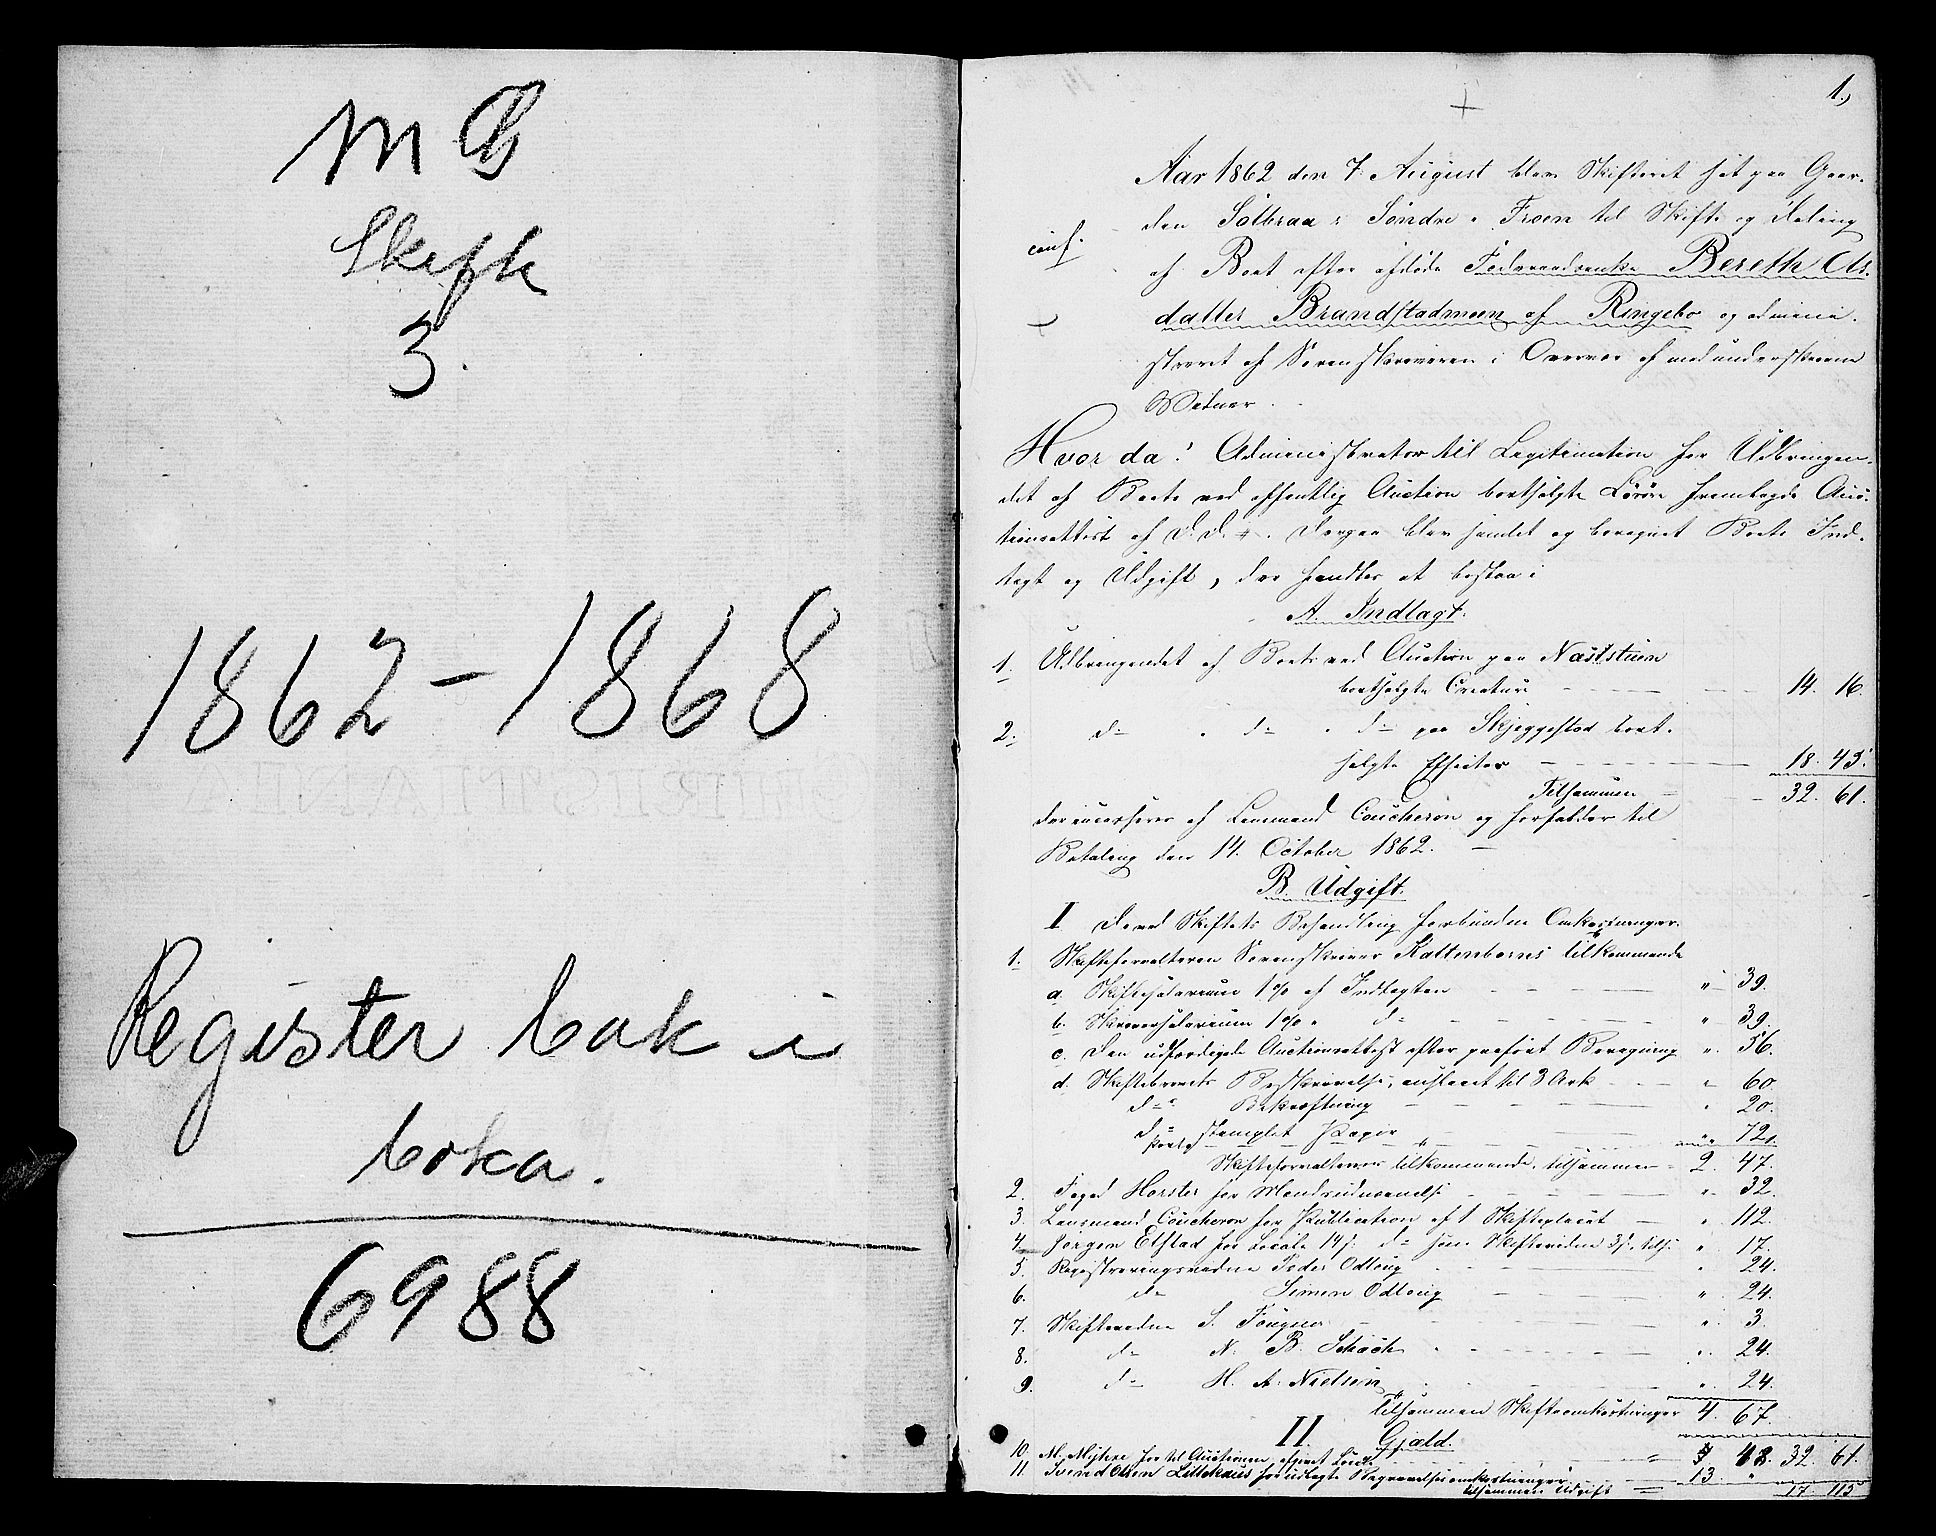 Skifte
3.
1862 - 1868
Register bak i
boka.
6988
1,
Aar 1862 den 7. August blev Skifteret sat paa Gaar-
den Solbraa i Søndre Froen til Skifte og Deling
conf.
af Boet efter afdøde Føderaadsenke Bereth Ols-
datter Brandstadmoen af Ringebo og admini-
streret af Sorenskriveren i Overvær af medunderskrevne
Vidner.
Hvorda! Administrator til Legitimation for Udbringen-
det af Boets ved offentlig Auction bortsolgte Løsøre fremlagde Auc-
tionsattest af D.D. Derpaa blev samlet og beregnet Boets Ind-
tægt og Udgift, der fandtes at bestaa i
A. Indtægt.
1. Udbringendet af Boets ved Auction paa Næststuen
bortsolgte Creature 14. 16.
2. do do do paa Skjeggestad bort-
solgte Effecter 18. 45.
Tilsammen 32. 61.
der incasseres af Lensmand Coucheron og forfalder til
Betaling den 14. October 1862.
B. Udgift.
I De ved Skiftets Behandling forbundne Omkostninger.
1. Skifteforvalteren Sorenskriver Kaltenborns tilkommende
a. Skiftesalarium 1 % af Indtægten " 39.
b. Skriversalarium 1 % " do " 39.
c. Den udfærdigede Auctionsattest efter paaført Beregning " 56.
d. Skiftebrevets Beskrivelse, anslaaet til 3 Ark " 60.
do Bekræftning " 20.
do stemplet Papir
" 72.
Skifteforvalterens tilkommende, tilsammen 2. 47.
2. Foged Horster for " 32.
3. Lensmand Coucheron for Publication af 1 Skifteplacat " 112.
4. Jørgen Elstad for Locale 14 s. do som Skiftevidne 3 s., tils. " 17.
5. Registreringsvidne Peder Odloug " 24.
6. do Simen Odloug " 24.
7. Skiftevidne S. Fougner " 3.
8. do N. B. Schach " 24.
9. do H. A. Nielsen " 24.
Tilsammen Skifteomkostninger 4. 67.
II. Gjæld.
10. M. Myhre for til Auctionen afgivet Locale 48. 32. 61.
11. Svend Olsen Lillekrus for udlagte Begravelsesomkostninger 13. "
tilsammen Udgift 17 115